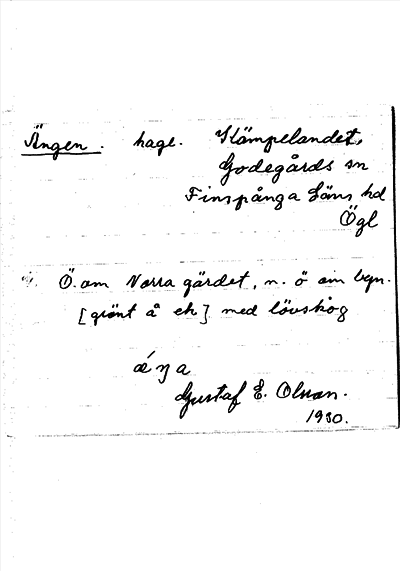 Ängen. hage. Kämpelandet,
Godegårds sn
Finspånga Läns hd
Ögl
Ö. om Norra gärdet, n. ö om byn.
[grönt å ek] med lövskog
ǽŋa
Gustaf E. Olsson.
1930.